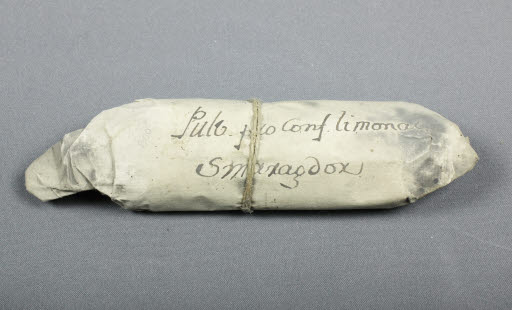 Pulv. pro Conf. limonac
Smaragdor